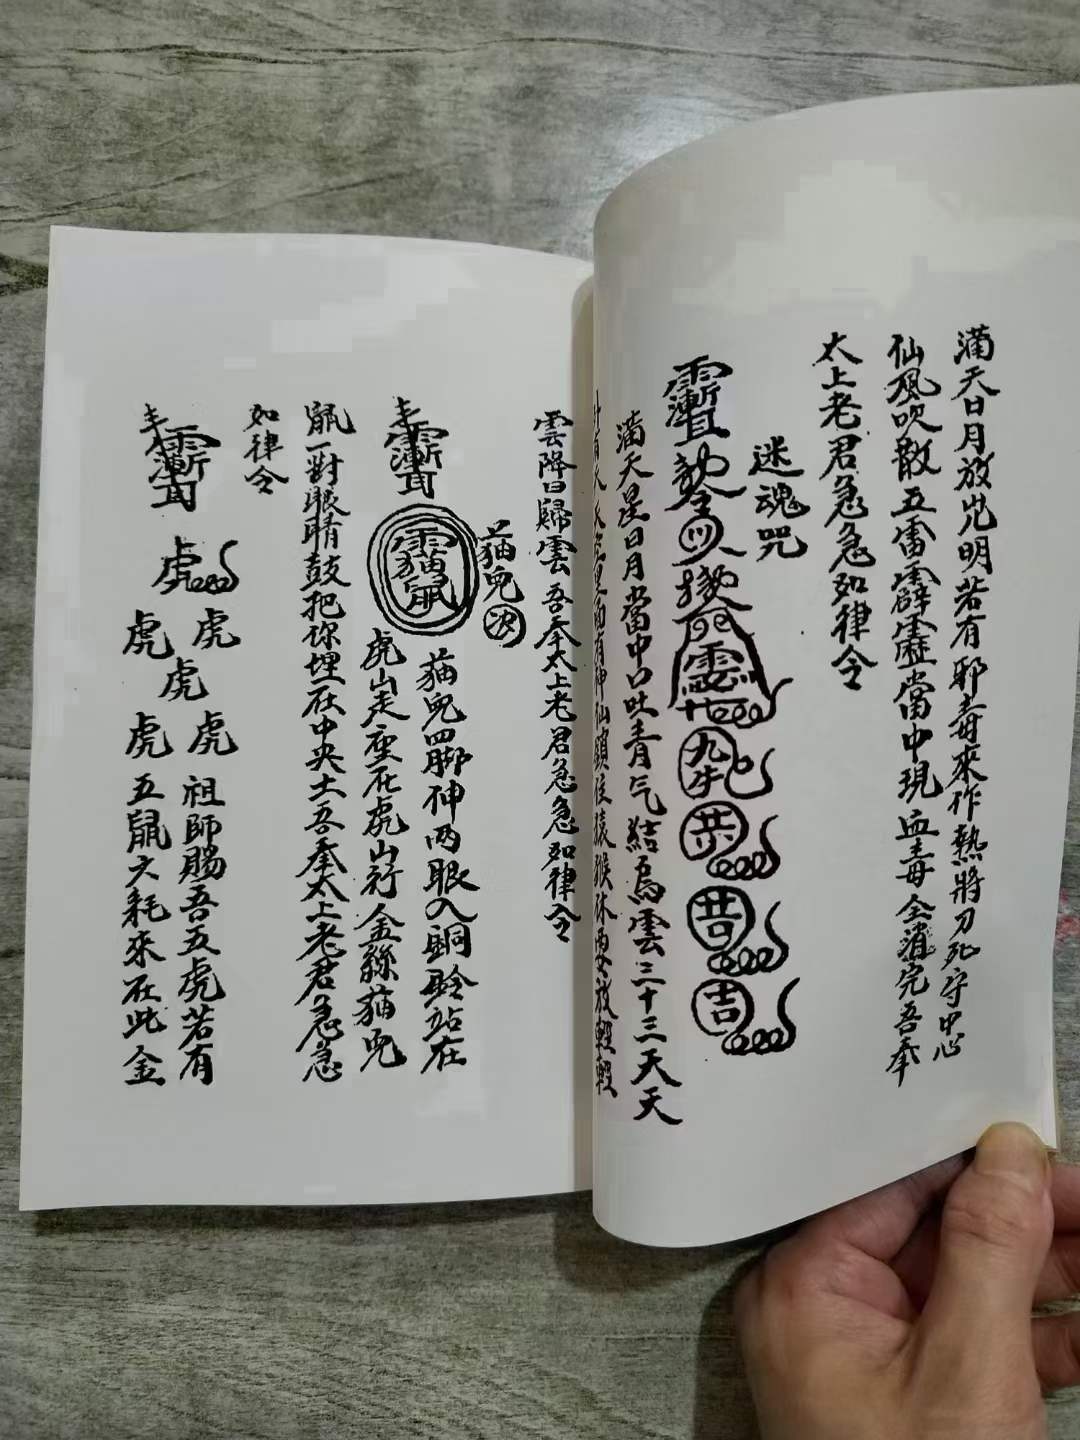 滿天日月放光明若有邪毒來作熱將刀死守中心
仙風吹散五雷霹靂當中現血毒全消完吾奉
太上老君急急如律令
迷魂咒
滿天星日月當中口吐青气結烏雲三十三天天
有神仙鎖住猿猴休要放輕輕
雲降日歸雲吾奉太上老君急急如律令
猫兒決
猫兒四脚伸两眼入銅鈴站在
虎山走座在虎山行金絲猫兒
鼠一對眼睛鼓把你埋在中央土吾奉太上老君急急
如律令
虎
虎
虎
虎
虎
虎
祖師賜吾五虎若有
五鼠六耗來在此金